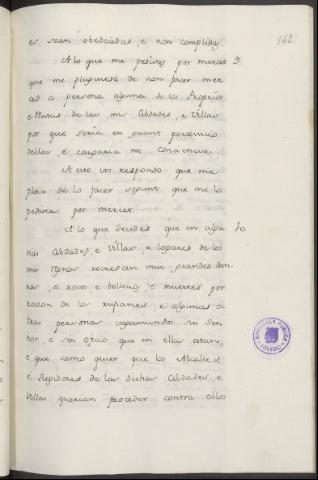 142
es sean obedecidas, e non complidas.
A lo que me pedistes por merced 9.
que me pluguiese de non facer mer-
ced a persona alguna de los Propios
e Rentas de las mis Cibdades, e Villas
por que seria en grant perjuicio
dellas, e cargaria mi conciencia.
A esto vos respondo que me
place de lo facer segunt que me lo
pedistes por merced.
A lo que decides que en algu- 10
nas Cibdades, e Villas, e logares de los
mis regnos recrescen muy grandes dan-
nos, e robo e bollicio, e muertes por
razon de los rufianes, e algunas o-
tras personas vagamundos sin Sen-
nor, e sin oficio que en ellas estan,
e que como quier que los Alcalles,
e Regidores de las dichas Cibdades e
Villas querian proceder contra ellos
BIBLIOTECA PUBLICA
TOLEDO